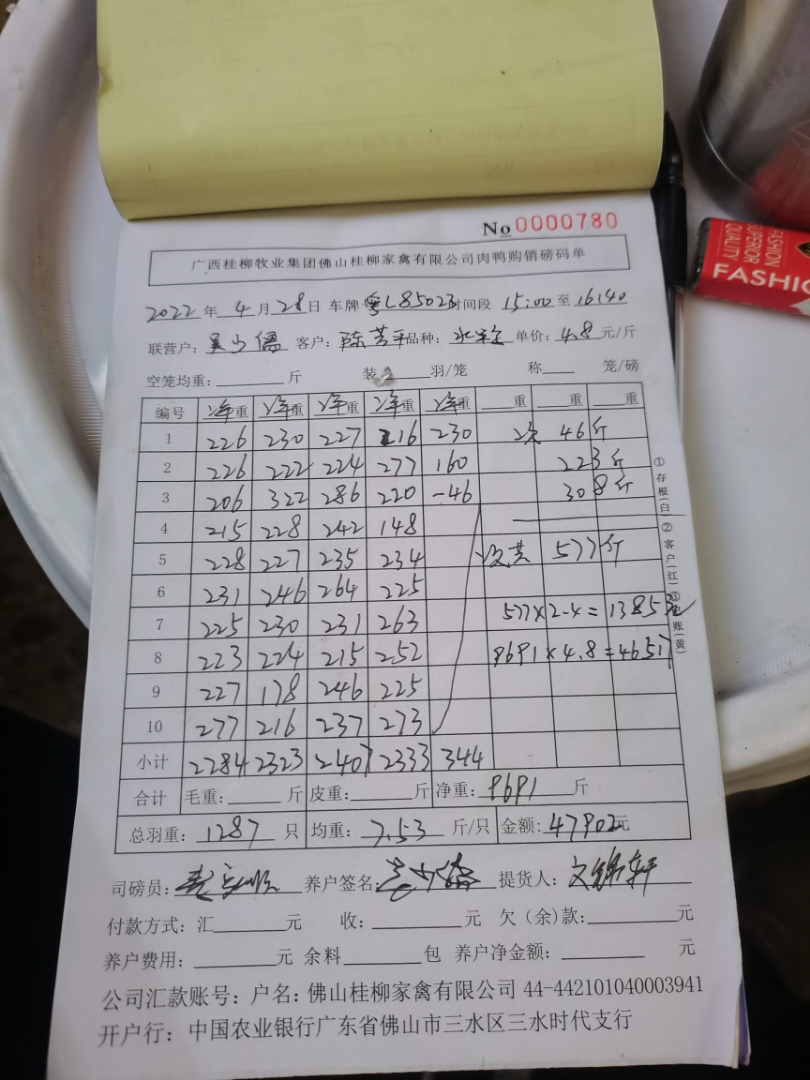 No 0000780
广西桂柳牧业集团佛山桂柳家禽有限公司肉鸭购销磅码单
2022 年 4 月 28 日 车牌 粤L85023 时间段 15:00 至 16:40
联营户: 吴少儒 客户: 陈芳平 品种: 单价: 4.8 元/斤
空笼均重: 斤 装 羽/笼 称 笼/磅
编号 净重 净重 净重 净重 净重 重 重 重
1 226 230 227 216 230 次 46斤
2 226 222 224 277 160 223斤
3 206 322 286 220 -46 308斤
4 215 228 242 148
5 228 227 235 234 次共 577斤
6 231 246 264 225
7 225 230 231 263 577×2.4=1385元
8 223 224 215 252 9691×4.8=46517
9 227 178 246 225
10 277 216 237 273
小计 2284 2323 2407 2333 344
合计 毛重: 斤 皮重: 斤 净重: 9691 斤
总羽重: 1287 只 均重: 7.53 斤/只 金额: 47902元
司磅员: 养户签名: 吴少儒 提货人:
付款方式: 汇 元 收: 元 欠(余)款: 元
养户费用: 元 余料 包 养户净金额: 元
公司汇款账号: 户名: 佛山桂柳家禽有限公司 44-442101040003941
开户行: 中国农业银行广东省佛山市三水区三水时代支行
①存根(白)②客户(红)③ 账(黄)
FASHION
SUPERIOR
QUALITY
FASHIO